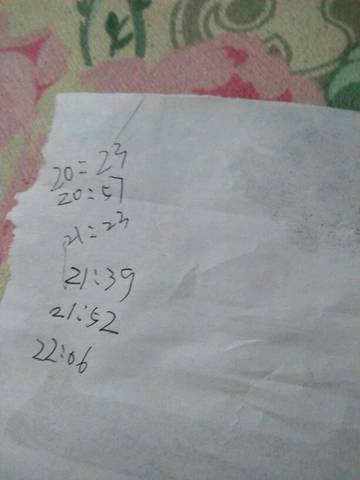 20:23
20:57
21:23
21:39
21:52
22:06